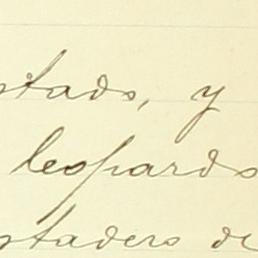 stado, y
leopardo
stadero de